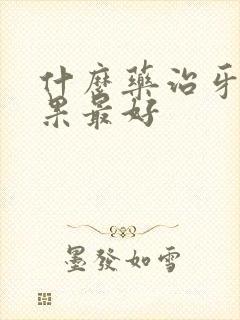 什麼藥治牙
果最好
墨發如雪